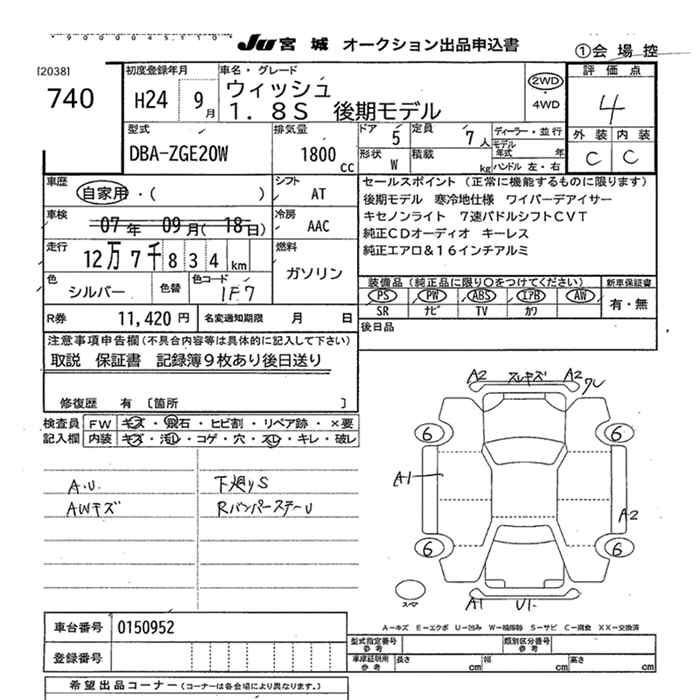 JU 宮城 オークション出品申込書
①会場控
[2038]
740
初度登録年月
H24 9月
車名・グレード
ウィッシュ
1.8S 後期モデル
2WD
4WD
評価点
4
外装 内装
C C
型式
DBA-ZGE20W
排気量
1800cc
ドア 5
定員 7人
形状 W
積載 kg
ディーラー・並行
モデル年式 年
ハンドル 左・右
車歴
自家用・( )
シフト
AT
車検
07年 09月(18日)
冷房
AAC
走行
12万7千834km
燃料
ガソリン
色
シルバー
色替
色コード
1F7
R券 11,420円
名変通知期限 月 日
セールスポイント(正常に機能するものに限ります)
後期モデル 寒冷地仕様 ワイパーデアイサー
キセノンライト 7速パドルシフトCVT
純正CDオーディオ キーレス
純正エアロ&16インチアルミ
装備品(純正品に限り〇をつけてください)
新車保証書
PS PW ABS エアB AW
SR ナビ TV カワ
有・無
後日品
注意事項申告欄(不具合内容等は具体的に記入して下さい)
取説 保証書 記録簿9枚あり後日送り
修復歴 有 〔箇所 〕
検査員記入欄
FW キズ・飛石・ヒビ割・リペア跡・×要
内装 キズ・汚レ・コゲ・穴・スレ・キレ・破レ
A.U.
AWキズ
下廻りS
RバンパーステーU
A2 スレキズ A2 ワレ
6 6
A1
A2
6 6
A1 U1
スペア
A-キズ E-エクボ U-凹ミ W-補修跡 S-サビ C-腐食 XX-交換済
車台番号 0150952
登録番号
型式指定番号 参考
類別区分番号 参考
車庫証明用 参考
長さ cm 幅 cm 高さ cm
希望出品コーナー(コーナーは各会場により異なります。)